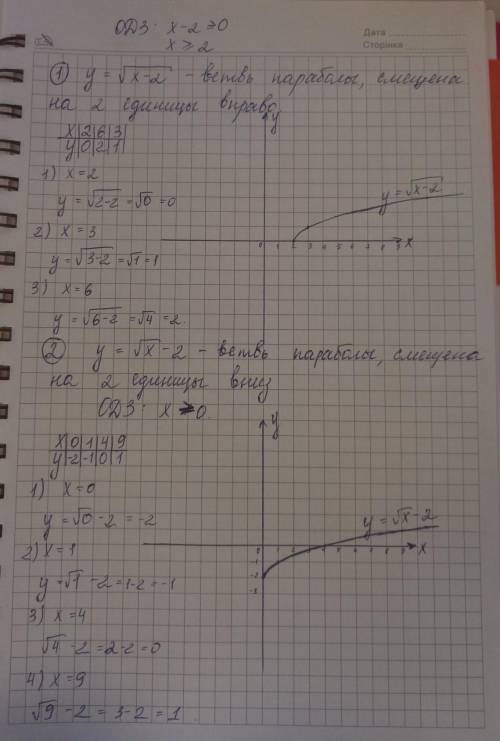 ОДЗ: x-2≥0
x≥2
Дата
Сторінка
① y = √(x-2) - ветвь параболы, смещена
на 2 единицы вправо
y
x|2|6|3|
y|0|2|1|
1) x=2
y=√(x-2)
y = √(2-2) = √0 = 0
2) x = 3
0 2 3 4 5 6 7 8 9 x
y=√(3-2)=√1=1
3) x=6
y = √(6-2) = √4 = 2.
② y = √x - 2 - ветвь параболы, смещена
на 2 единицы вниз
ОДЗ: x ≥ 0
y
x|0|1|4|9
y|-2|-1|0|1
1) x=0
y = √0 - 2 = -2
y = √x - 2
2) x=1
x
y=√1 - 2 = 1-2 = -1
3) x=4
√4 - 2 = 2-2 = 0
4) x=9
√9 - 2 = 3-2 = 1.